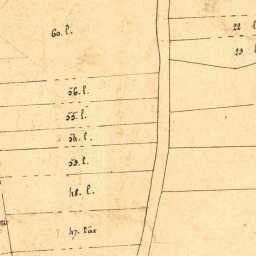 60. l.
22 l
23 l
56. l.
55. l.
54. l.
53. l.
48. l.
47.